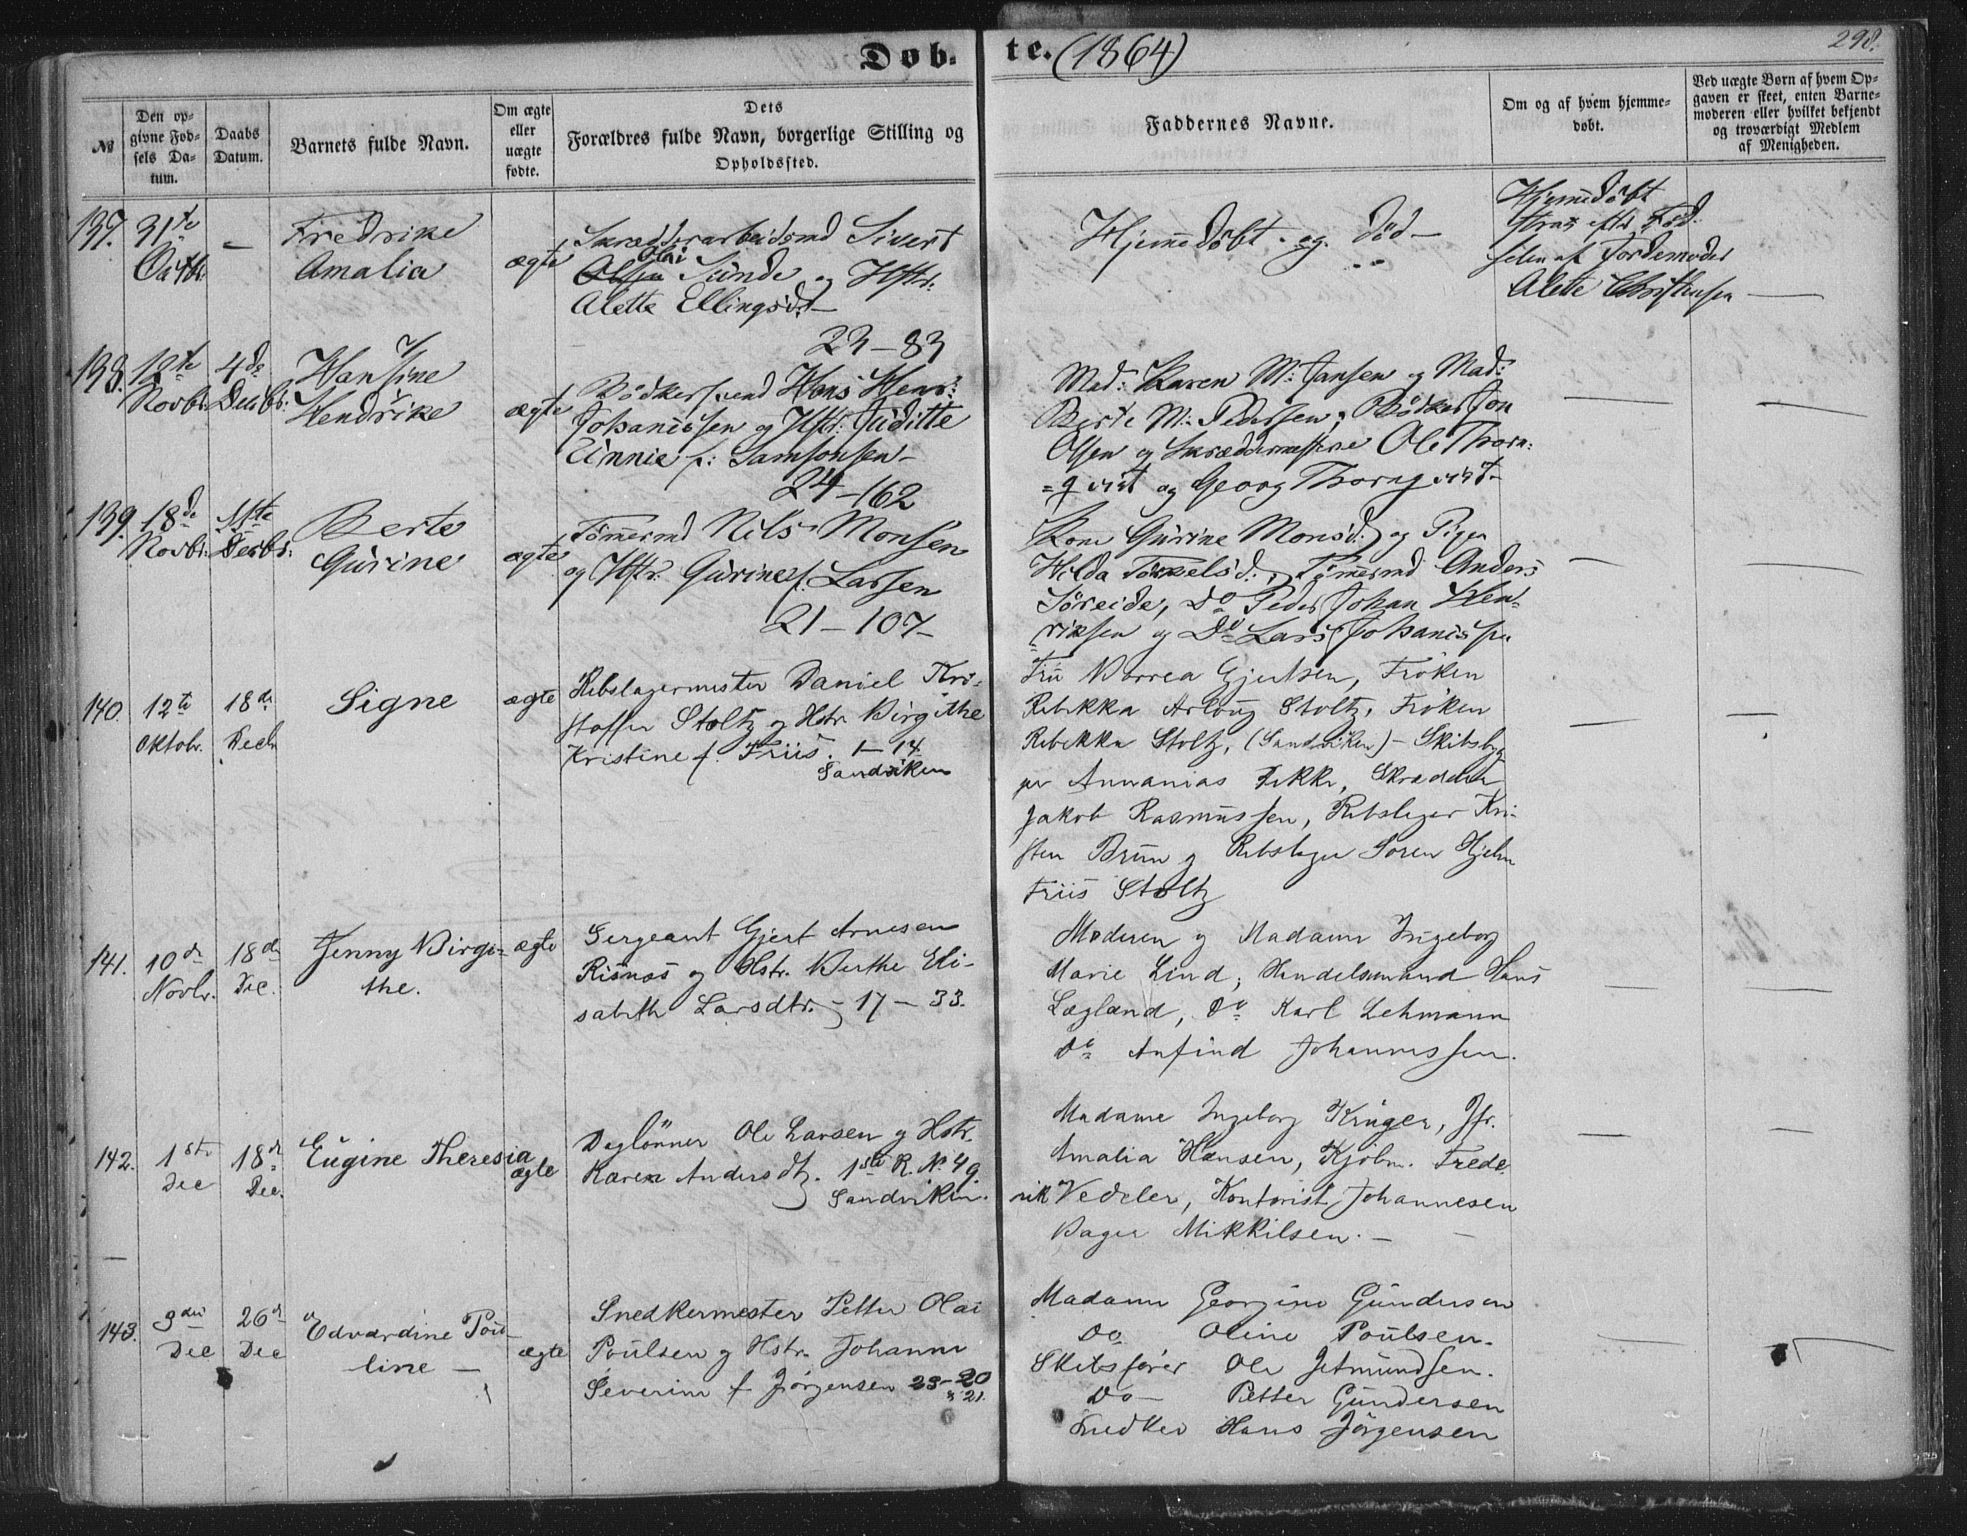 Døb-
te. (1864)
298.
№
Den op-
givne Fød-
sels Da-
tum.
Daabs
Datum.
Barnets fulde Navn.
Om ægte
eller
uægte
fødte.
Dets
Forældres fulde Navn, borgerlige Stilling og
Opholdssted.
Faddernes Navne.
Om og af hvem hjemme-
døbt.
Ved uægte Børn af hvem Op-
gaven er skeet, enten Barne-
moderen eller hvilket bekjendt
og troværdigt Medlem
af Menigheden.
137. 31te — Fredrike ægte Skrædderarbeidsmd Sivert
Amalia Olsen Olai Sunde og Hstr:
Alette Ellingsd. —
Hjemmedøbt og død —
Hjemmedøbt
strax efter Fød-
selen af Jordemoder
Alette Christensen —
23 — 83
138. 12te Novbr. 4de Decbr: Hansine
Hendrike ægte Bødkersvend Hans Henr:
Johannessen og Hstr: Juditte
Linnie f: Samsonsen —
24 — 162
Mad: Karen M: Jansen og Mad:
Berte M: Pedersen; Bødker Jon
Olsen og Skræddermestrene Ole Thorn-
=qvist og Georg Thornqvist —
139. 18de Novbr: 11te Decbr: Berte
Gurine ægte Tømmermd Nils Monsen
og Hstr. Gurine f. Larsen
21 — 107 —
Kone Gurine Monsd: og Pigen
Hilda Torkelsd:, Tømmermd Anders
Søreide, Do Peder Johan Hen-
riksen og Do Lars Johannessen
140. 12te Oktobr. 18de Decbr Signe ægte Rebslagermester Daniel Kri-
stoffer Stoltz og Hstr Birgithe
Kristine f. Friis. 1 — 14
Sandviken
Fru Borrea Gjertsen, Frøken
Rebekka Stoltz, Frøken
Rebekka Stoltz, (Sandviken) — Skibsbyg-
ger Annanias Dekke, Skrædder
Jakob Rasmussen, Rebslager Kri-
sten Brun og Rebslager Søren Hjelm
Friis Stoltz
141. 10de Novbr. 18de Dec. Jenny Birgi-
the. ægte Sergeant Gjert Arnesen
Risnæs og Hstr. Berthe Eli-
sabeth Larsdtr. — 17 — 33.
Moderen og Madame Ingeborg
Marie Lind; Handelsmand Hans
Lægland, Do Karl Lehmann
Do Anfind Johannessen.
142. 1ste Dec 18de Dec. Eugine Theresia ægte Dagløner Ole Larsen og Hstr.
Karen Andersdtr. 1ste R. No 49
Sandviken.
Madame Ingeborg Krüger, Jfr.
Amalia Hansen, Kjøbm. Frede-
rik Vedeler, Kontorist Johannesen
Bager Mikkelsen. —
143. 3die Dec 26de Dec Edvardine Pau-
line — ægte Snedkermester Petter Olai
Poulsen og Hstr. Johanne
Severine f Jørgensen 23 — 20
& 21.
Madame Georgine Gundersen
Do Oline Poulsen.
Skibsfører Ole Jetmundsen.
Do — Petter Gundersen
Snedker Hans Jørgensen